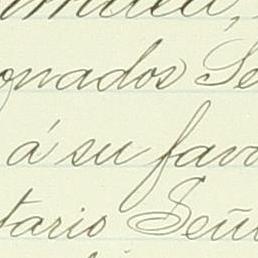 onados Se
á su favo
tario Seño